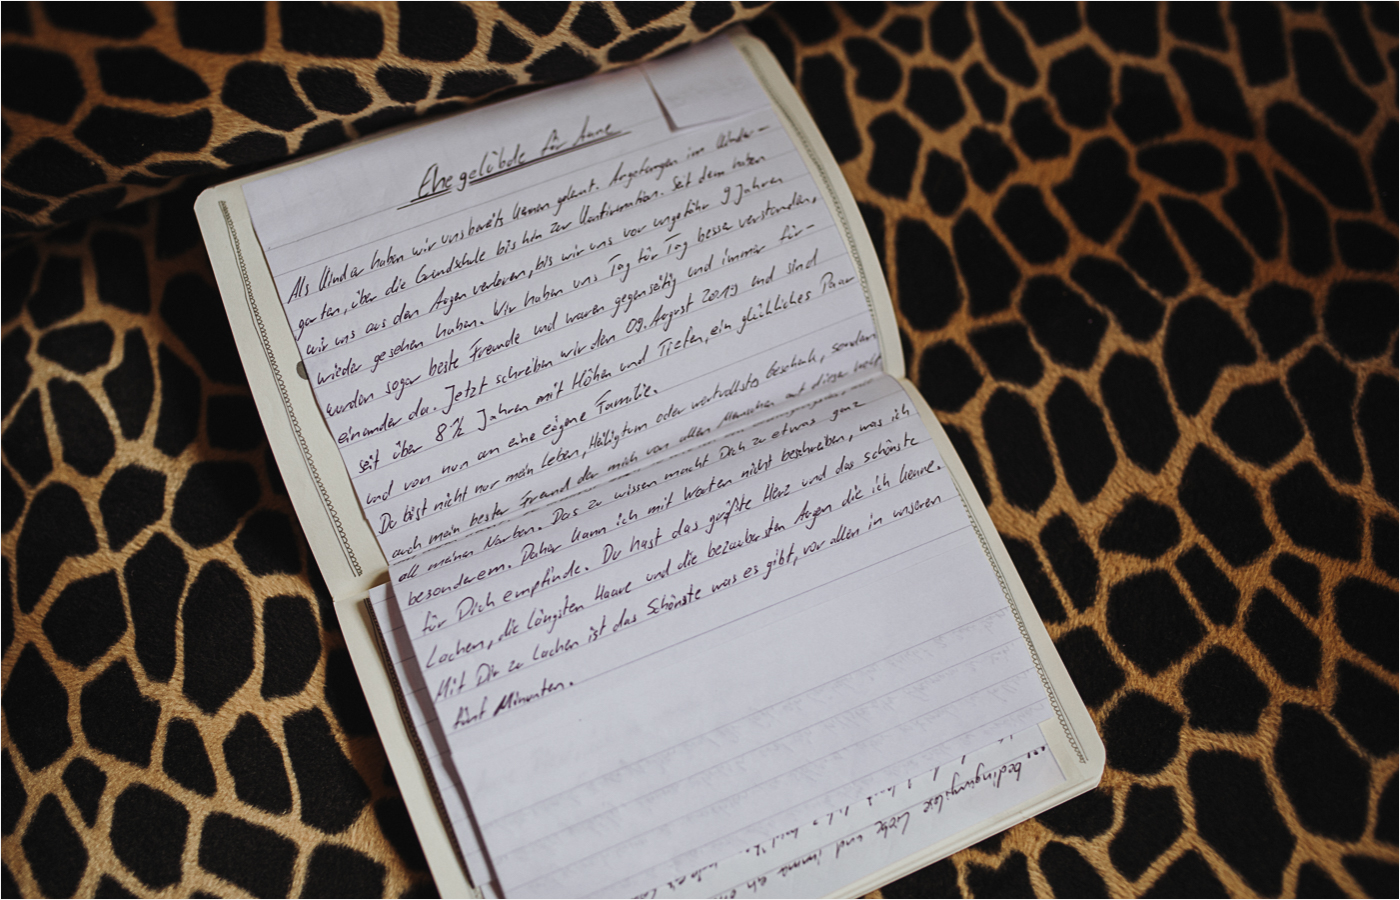 Ehegelübde für Anne
Als Kinder haben wir uns bereits kennen gelernt. Angefangen im Kinder-
garten, über die Grundschule bis hin zur Konfirmation. Seit dem haben
wir uns aus den Augen verloren, bis wir uns vor ungefähr 9 Jahren
wieder gesehen haben. Wir haben uns Tag für Tag besser verstanden,
wurden sogar beste Freunde und waren gegenseitig und immer für-
einander da. Jetzt schreiben wir den 09. August 2019 und sind
seit über 8 ½ Jahren mit Höhen und Tiefen, ein glückliches Paar
und von nun an eine eigene Familie.
Du bist nicht nur mein Leben, Heiligtum oder wertvollstes Geschenk, sondern
auch mein bester Freund der mich von allen Menschen auf dieser Welt
all meinen Narben. Das zu wissen macht Dich zu etwas ganz
besonderem. Daher kann ich mit Worten nicht beschreiben, was ich
für Dich empfinde. Du hast das größte Herz und das schönste
Lachen, die längsten Haare und die bezaubersten Augen die ich kenne.
Mit Dir zu Lachen ist das Schönste was es gibt, vor allem in unseren
fünf Minuten.
bedingungslose Liebe und immer